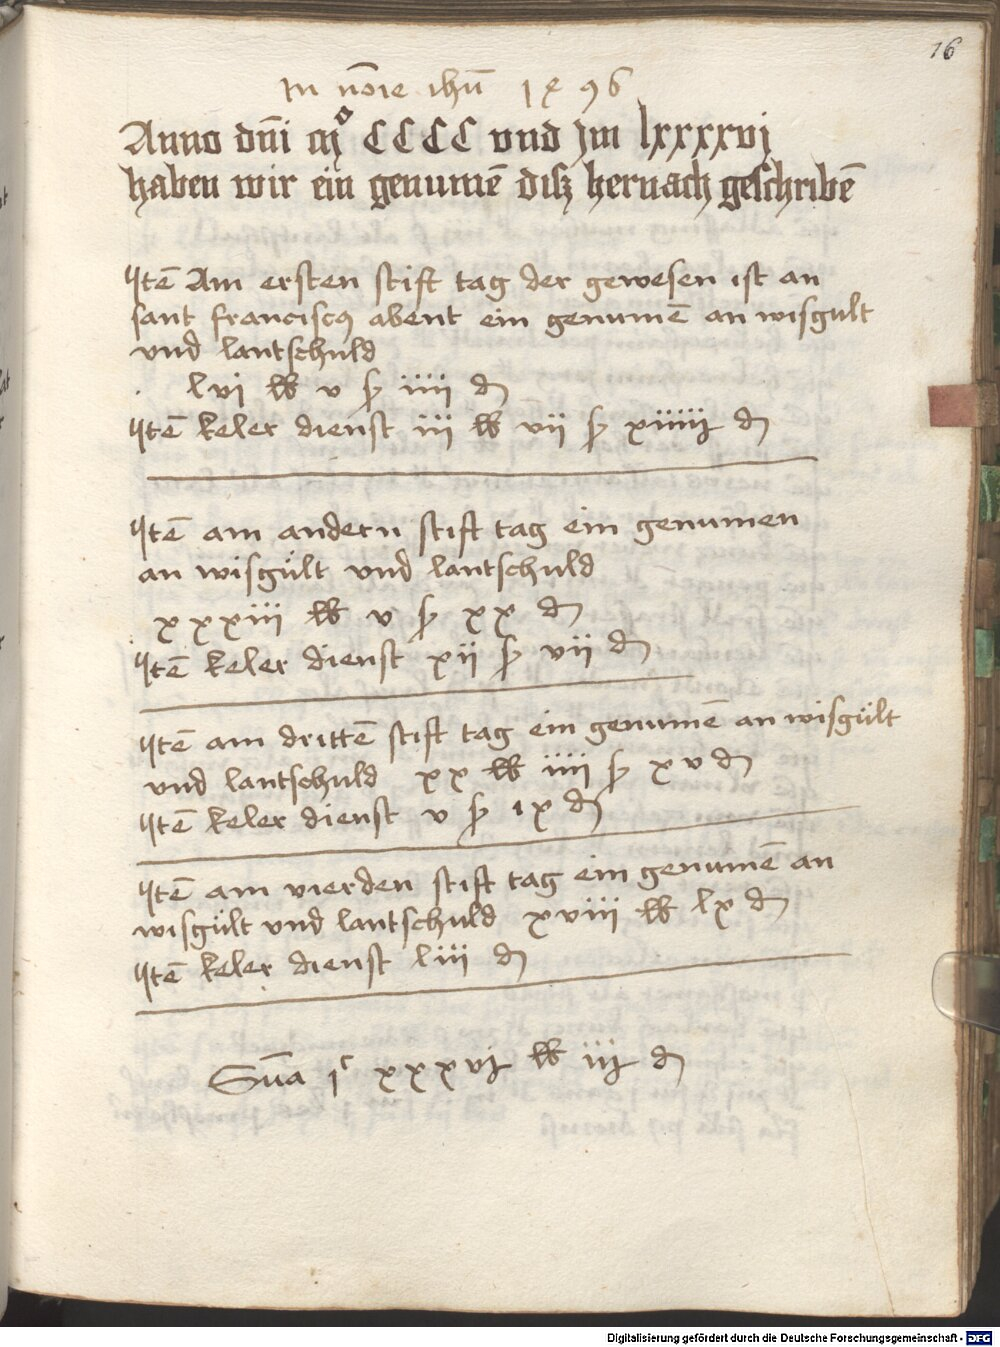 16
In nōıe ihū 1496
Anno dn̄i mº CCCC vnd jm lxxxxvj
haben wir ein genumē disz hernach geschribē
Itē Am ersten stift tag der gewesen ist an
sant franciscꝯ abent ein genumē an wisgult
vnd lantschuld
lvj ℔ v ꝭ iiii ₰
Itē keler dienst iii ℔ vii ꝭ xiiiij ₰
Itē am andern stift tag ein genumen
an wisgült vnd lantschuld
xxxiii ℔ v ꝭ xx ₰
Itē keler dienst xii ꝭ vii ₰
Itē am drittē stift tag ein genumē an wisgült
vnd lantschuld xx ℔ iiii ꝭ xv ₰
Itē keler dienst v ꝭ ix ₰
Itē am vierden stift tag ein genumē an
wisgült vnd lantschuld xviii ℔ lx ₰
Itē keler dienst liii ₰
Sūa jᶜ xxxvj ℔ iij ₰
Digitalisierung gefördert durch die Deutsche Forschungsgemeinschaft - DFG